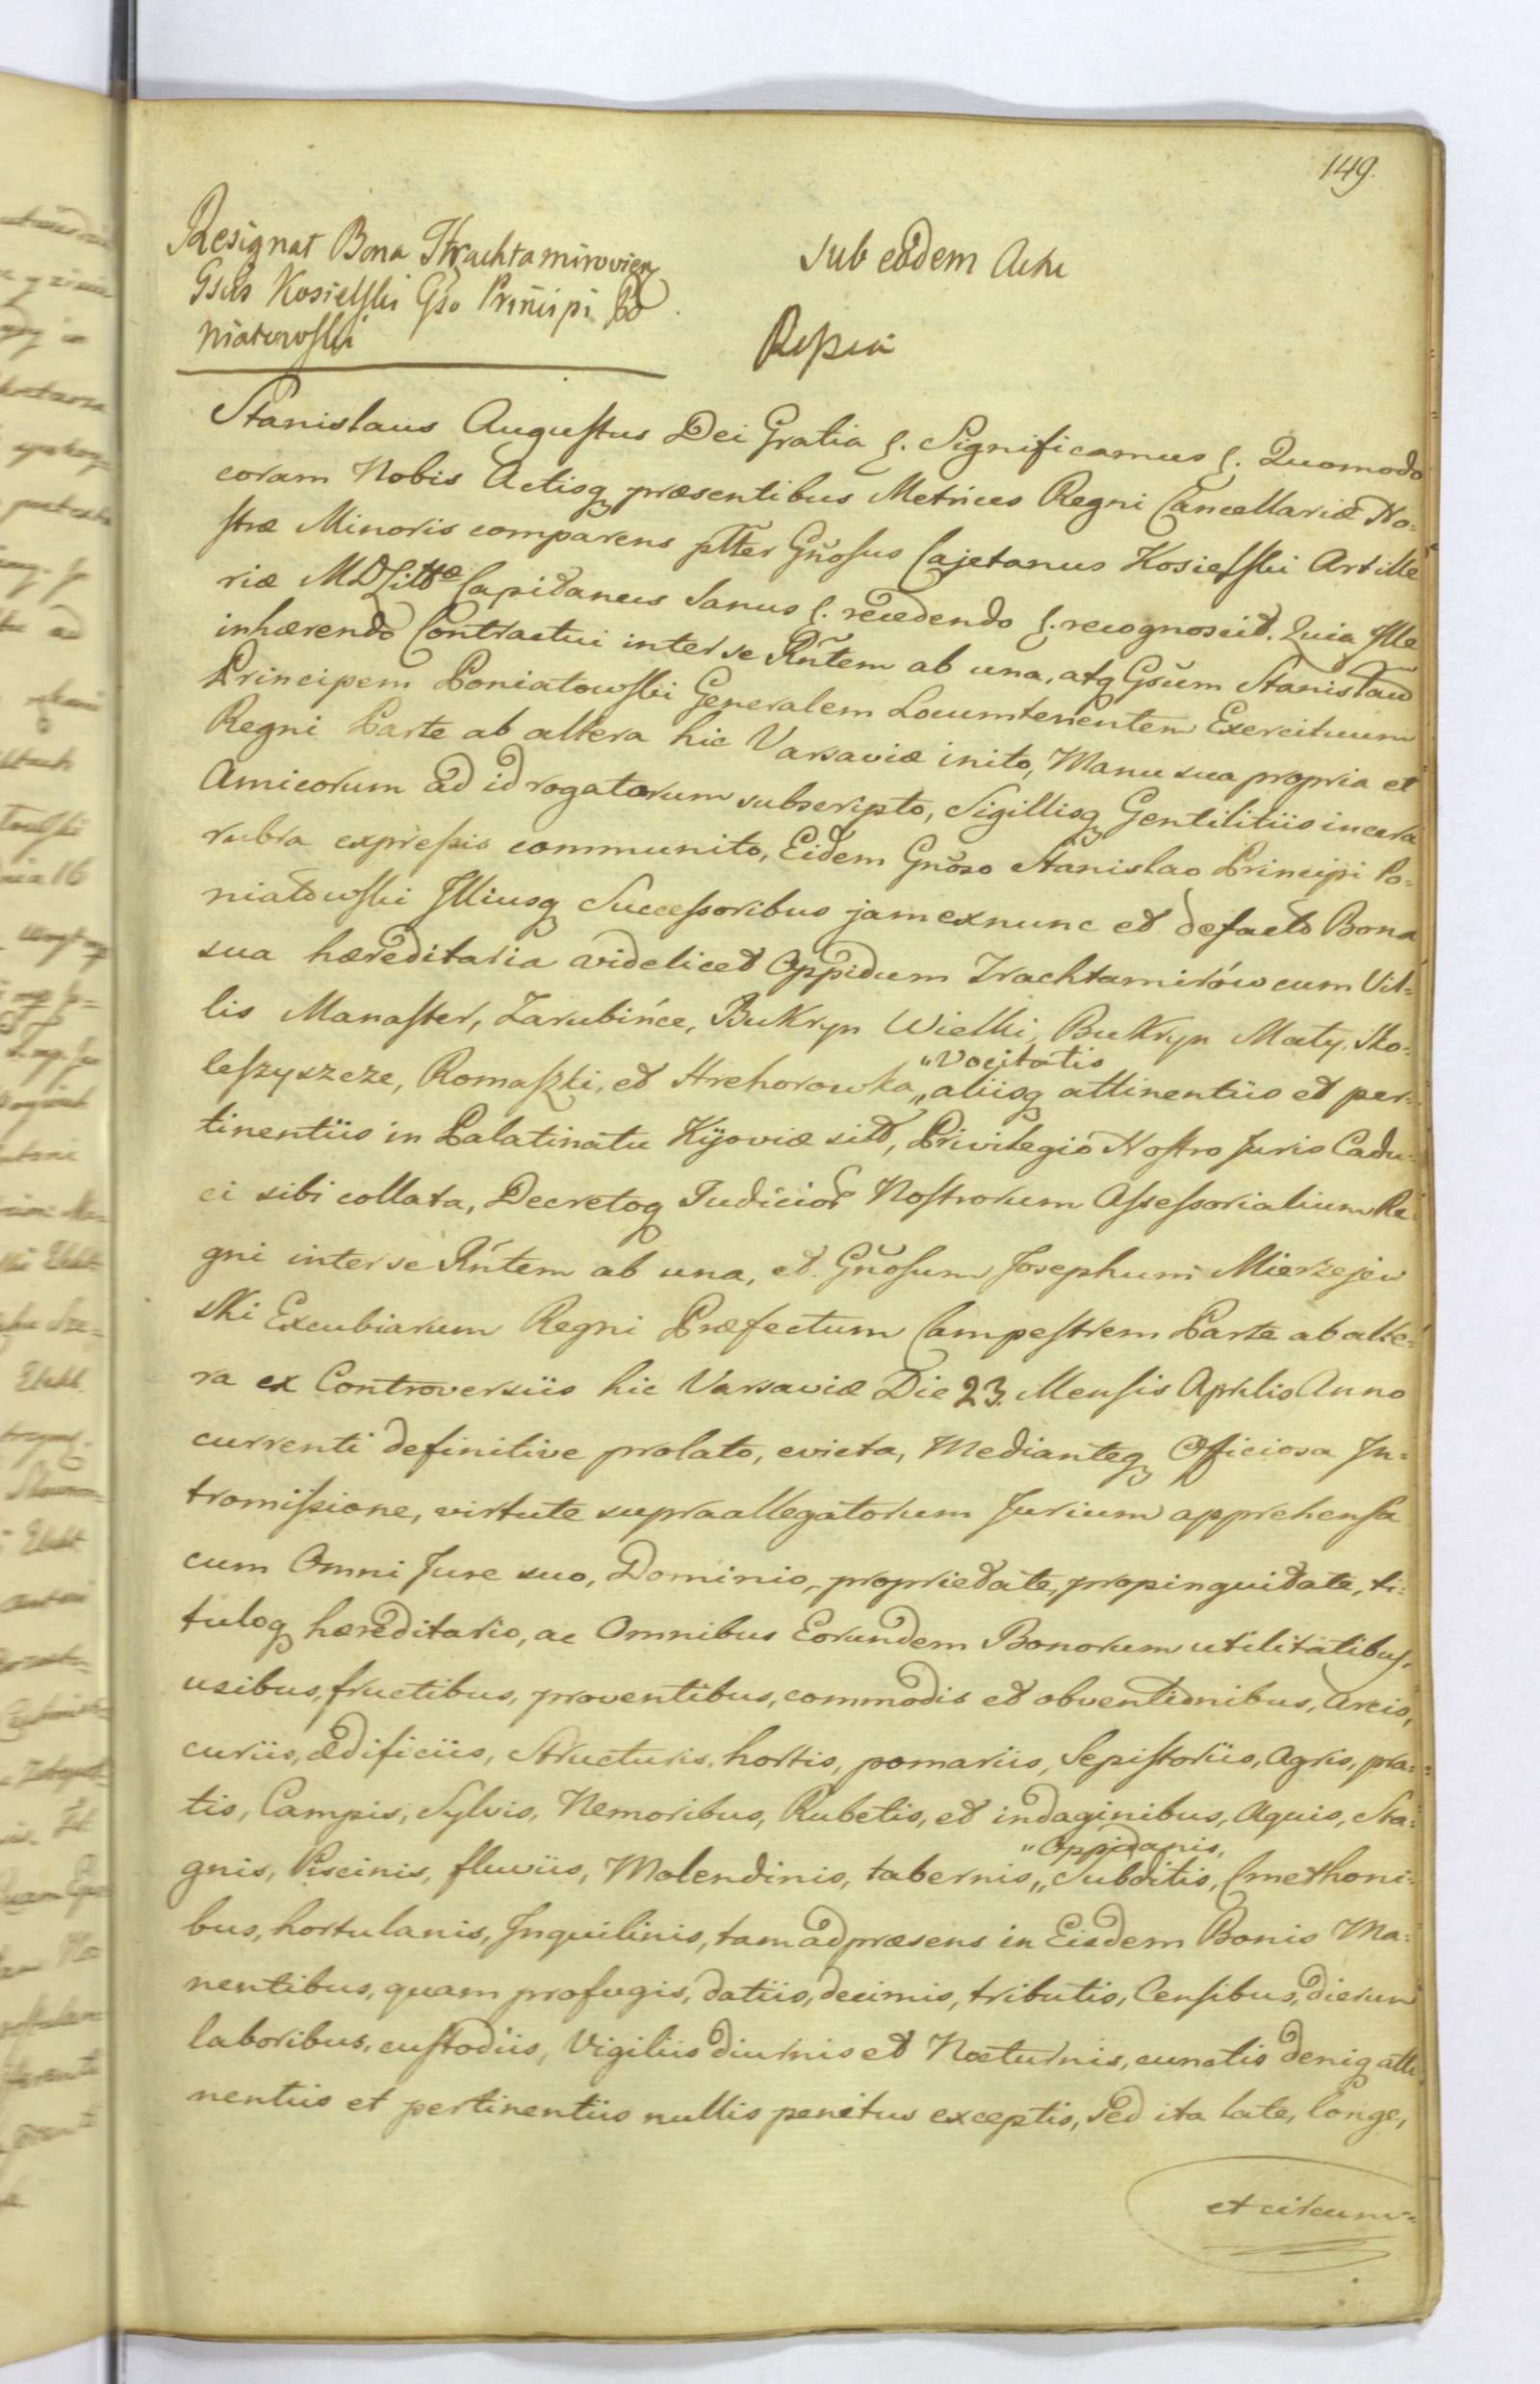 149.
Resignat Bona Thrachtamirovien
Gsus Kosielski Gso Principi Po
niatowski
Sub eodem Actu
Stanislaus Augustus Dei Gratia &. Significamus &. Quomodo
coram Nobis Actisq præsentibus Metrices Regni Cancellariæ No=
stræ Minoris comparens plter Gnosus Cajetanus Kosielski Artille
riæ MDLittæ Capitaneus Sanus &. recedendo &. recognoscit. Quia Ille
inhærendo Contractui inter se Rntem ab una, atq Gsum Stanislaū
Principem Poniatowski Generalem Locumtenentem Exercituum
Regni Parte ab altera hic Varsaviæ inito, Manu sua propria et
Amicorum ad id rogatorum subscripto, Sigillisq Gentilitiis in cera
rubra expressis communito, Eidem Gnoso Stanislao Principi Po=
niatowski Illiusq Successoribus jam exnunc et de facto Bona
sua hæreditaria videlicet Oppidum Trachtamirów cum Vil=
lis Manaster, Zarubińce, Bukryn Wielki, Bukryn Mały. Sko=
"Vocitatis
leszyszcze, Romaszki, et Hrehorowka „aliisq attinentiis et per=
tinentiis in Palatinatu Kijoviæ sita, Privilegio Nostro Juris Cadu=
ci sibi collata, Decretoq Judicior Nostrorum Assessorialium Re=
gni inter se Rntem ab una, et Gnosum Josephum Mierzejew
ski Excubiarum Regni Præfectum Campestrem Parte ab alte=
ra ex Controversiis hic Varsaviæ Die 23. Mensis Aprilis Anno
currenti definitive prolato, evicta, Medianteq Officiosa In=
tromissione, virtute supraallegatorum Jurium apprehensa
cum Omni Jure suo, Dominio, proprietate, propinquitate, ti=
tuloq hæreditario, ac Omnibus Eorundem Bonorum utilitatibus,
usibus, fructibus, proventibus, commodis et obventionibus, Areis,
curiis, ædificiis, Structuris, hortis, pomariis, Sepistoriis, Agris, pra=
tis, Campis, Sylvis, Nemoribus, Rubetis, et indaginibus, Aquis, Sta=
"Oppidanis,
gnis, Piscinis, fluviis, Molendinis, tabernis „Subditis, Cmethoni=
bus, hortulanis, Inquilinis, tam ad præsens in Eisdem Bonis Ma=
nentibus, quam profugis, datiis, decimis, tributis, Censibus, dierum
laboribus, custodiis, Vigiliis diurnis et Nocturnis, cunctis deniq atti
nentiis et pertinentiis nullis penitus exceptis, sed ita late, longe,
et circum=